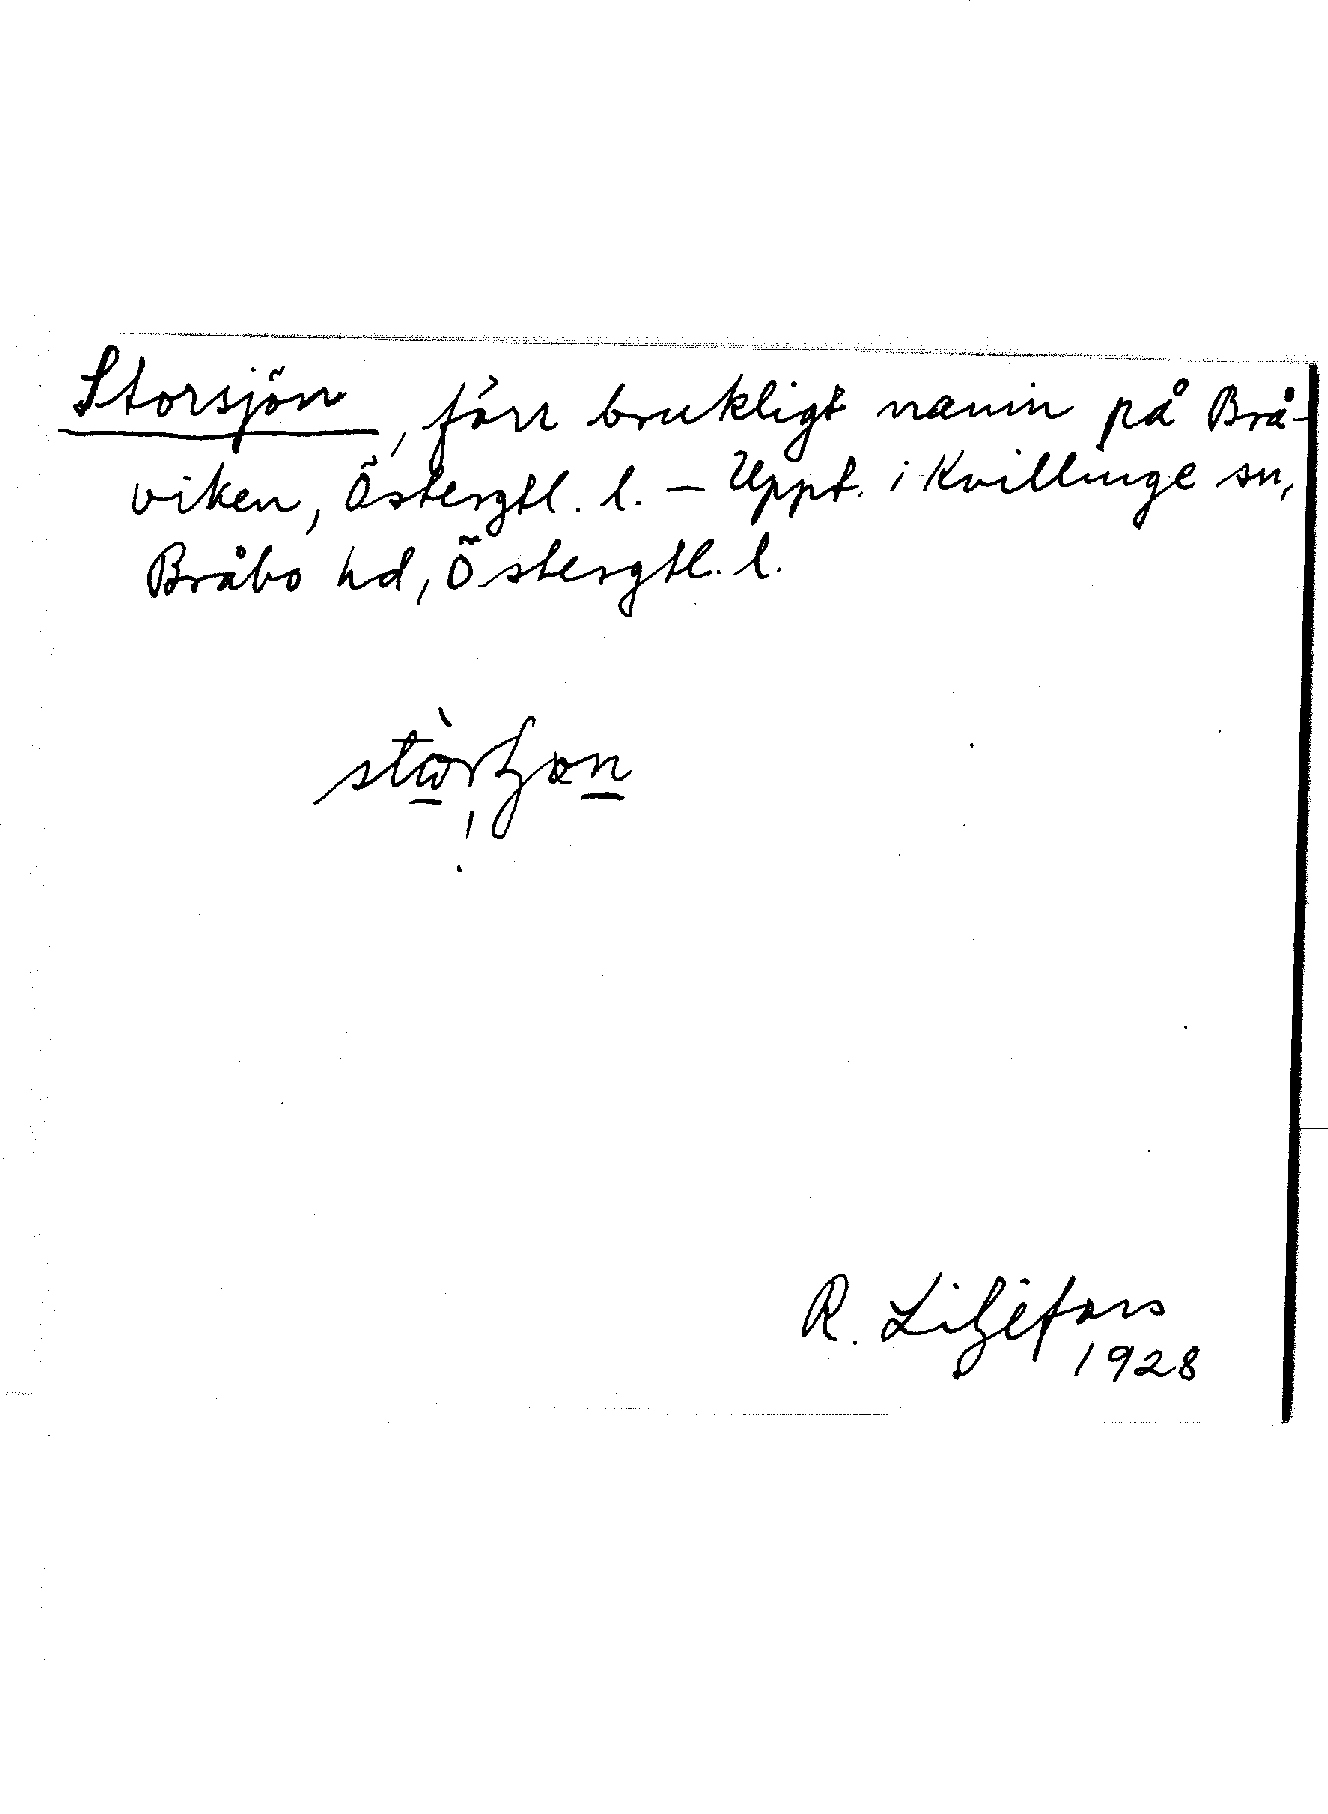 Storsjön, förr brukligt namn på Brå-
viken, Östergtl. l. – Uppt. i Kvillinge sn,
Bråbo hd, Östergtl. l.
R. Liljefors
1928